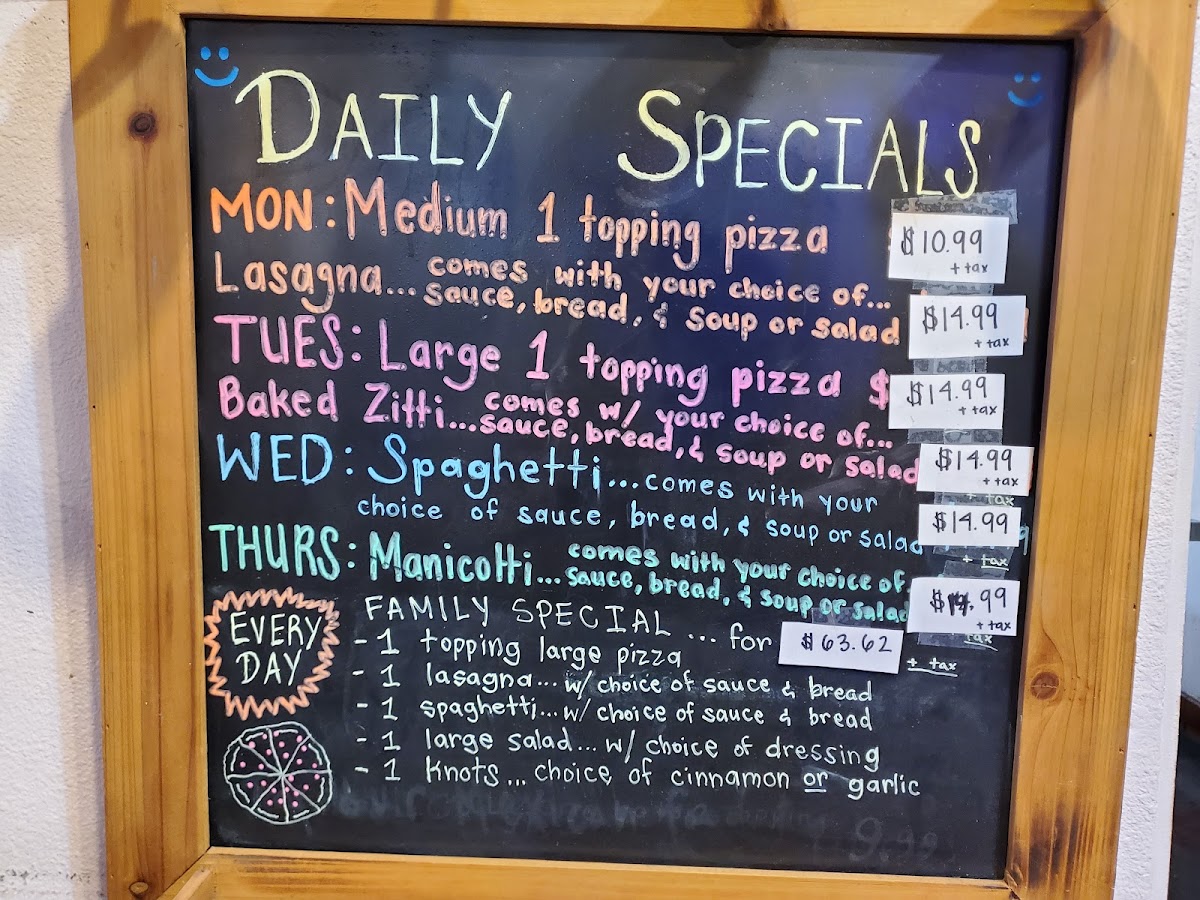 DAILY SPECIALS
MON: Medium 1 topping pizza $10.99 + tax
Lasagna... comes with your choice of...
sauce, bread, & soup or salad $14.99 + tax
TUES: Large 1 topping pizza $ $14.99 + tax
Baked Zitti... comes w/ your choice of...
sauce, bread, & soup or salad $14.99 + tax
+ tax
WED: Spaghetti... comes with your
choice of sauce, bread, & soup or salad $14.99
+ tax
THURS: Manicotti... comes with your choice of
sauce, bread, & soup or salad .99 + tax
tax
EVERY DAY
FAMILY SPECIAL ... for $63.62 + tax
- 1 topping large pizza
- 1 lasagna... w/ choice of sauce & bread
- 1 spaghetti... w/ choice of sauce & bread
- 1 large salad... w/ choice of dressing
- 1 knots... choice of cinnamon or garlic
9.99